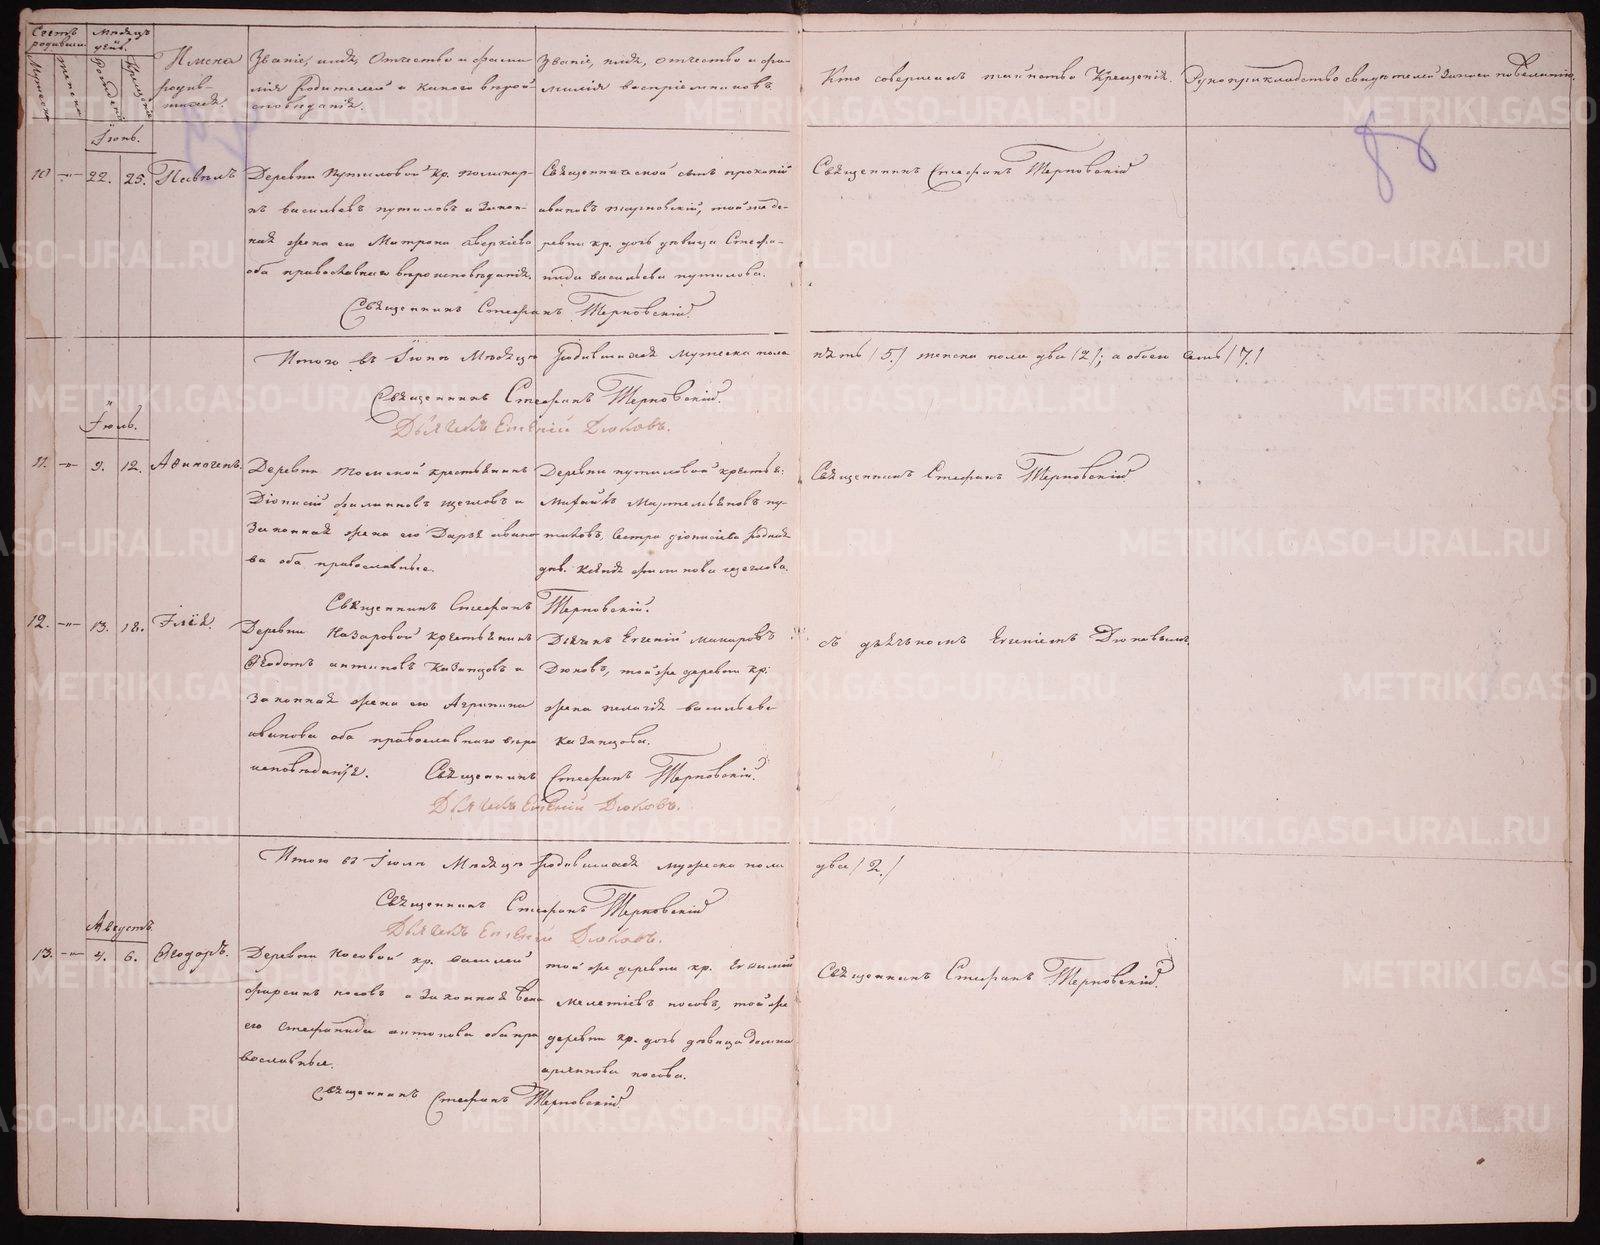 Счетъ родившихся
Мужеска
женска
Мѣсяцъ день.
Рожденія
Крещенія
Имена
родив-
шихся.
Званіе, имя, Отчество и фами-
лія родителей и какого вѣрои-
сповѣданія.
Званіе, имя, отчество и фа-
милія воспріемниковъ.
Кто совершалъ таинство Крещенія.
Рукоприкладство свидѣтелей записи по желанію.
Іюнь.
10 22. 25. Павелъ
Деревни Путиловой кр. поликар-
пъ васильевъ путиловъ и закон-
ная жена его Матрона аверкіева
оба православнаго вѣроисповѣданія.
Священнической сынъ прокопій
ивановъ терновскій, той же де-
ревни кр. дочь дѣвица Стефа-
нида васильева путилова.
Священникъ Стефанъ Терновскій
Священникъ Стефанъ Терновскій.
Итого въ Іюнѣ Мѣсяцѣ родившихся мужеска пола
пять /5./ женска пола два /2/; а обоего семь /7./
Священникъ Стефанъ Терновскій.
Дьячекъ Евгеній Дюковъ.
Іюль.
11. 9. 12. Аѳиногенъ.
Деревни Томской крестьянинъ
Діонисій филиповъ щегловъ и
Законная жена его Дарья ивано-
ва оба православные.
Деревни путиловой крестья:
Михаилъ Мартемьяновъ пу-
тиловъ, Сестра діонисіева родная
дѣв. Ксенія филипова щеглова.
Священникъ Стефанъ Терновскій
Священникъ Стефанъ Терновскій.
12. 13. 18. Іліа.
Деревни Назаровой крестьянинъ
Ѳедотъ антиповъ Казанцовъ и
Законная жена его Агрипина
иванова оба православнаго вѣро
исповѣданія.
Діячекъ Евгеній макаровъ
Дюковъ, той же деревни кр:
жена пелагія васильева
казанцова.
съ дьячкомъ Евгеніемъ Дюковымъ.
Священникъ Стефанъ Терновскій.
Дьячекъ Евгеній Дюковъ.
Итого въ Іюлѣ Мѣсяцѣ родившихся мужеска пола
два /2./
Священникъ Стефанъ Терновскій
Дьячекъ Евгеній Дюковъ.
Августъ.
13. 4. 6. Ѳеодоръ.
Деревни Носовой кр. василей
фирсинъ носовъ и Законная жена
его Стефанида антонова оба пра
вославные.
той же деревни кр. Евѳимій
мелетіевъ носовъ, той же
деревни кр. дочь дѣвица домна
архипова носова.
Священникъ Стефанъ Терновскій.
Священникъ Стефанъ Терновскій
METRIKI.GASO-URAL.RU